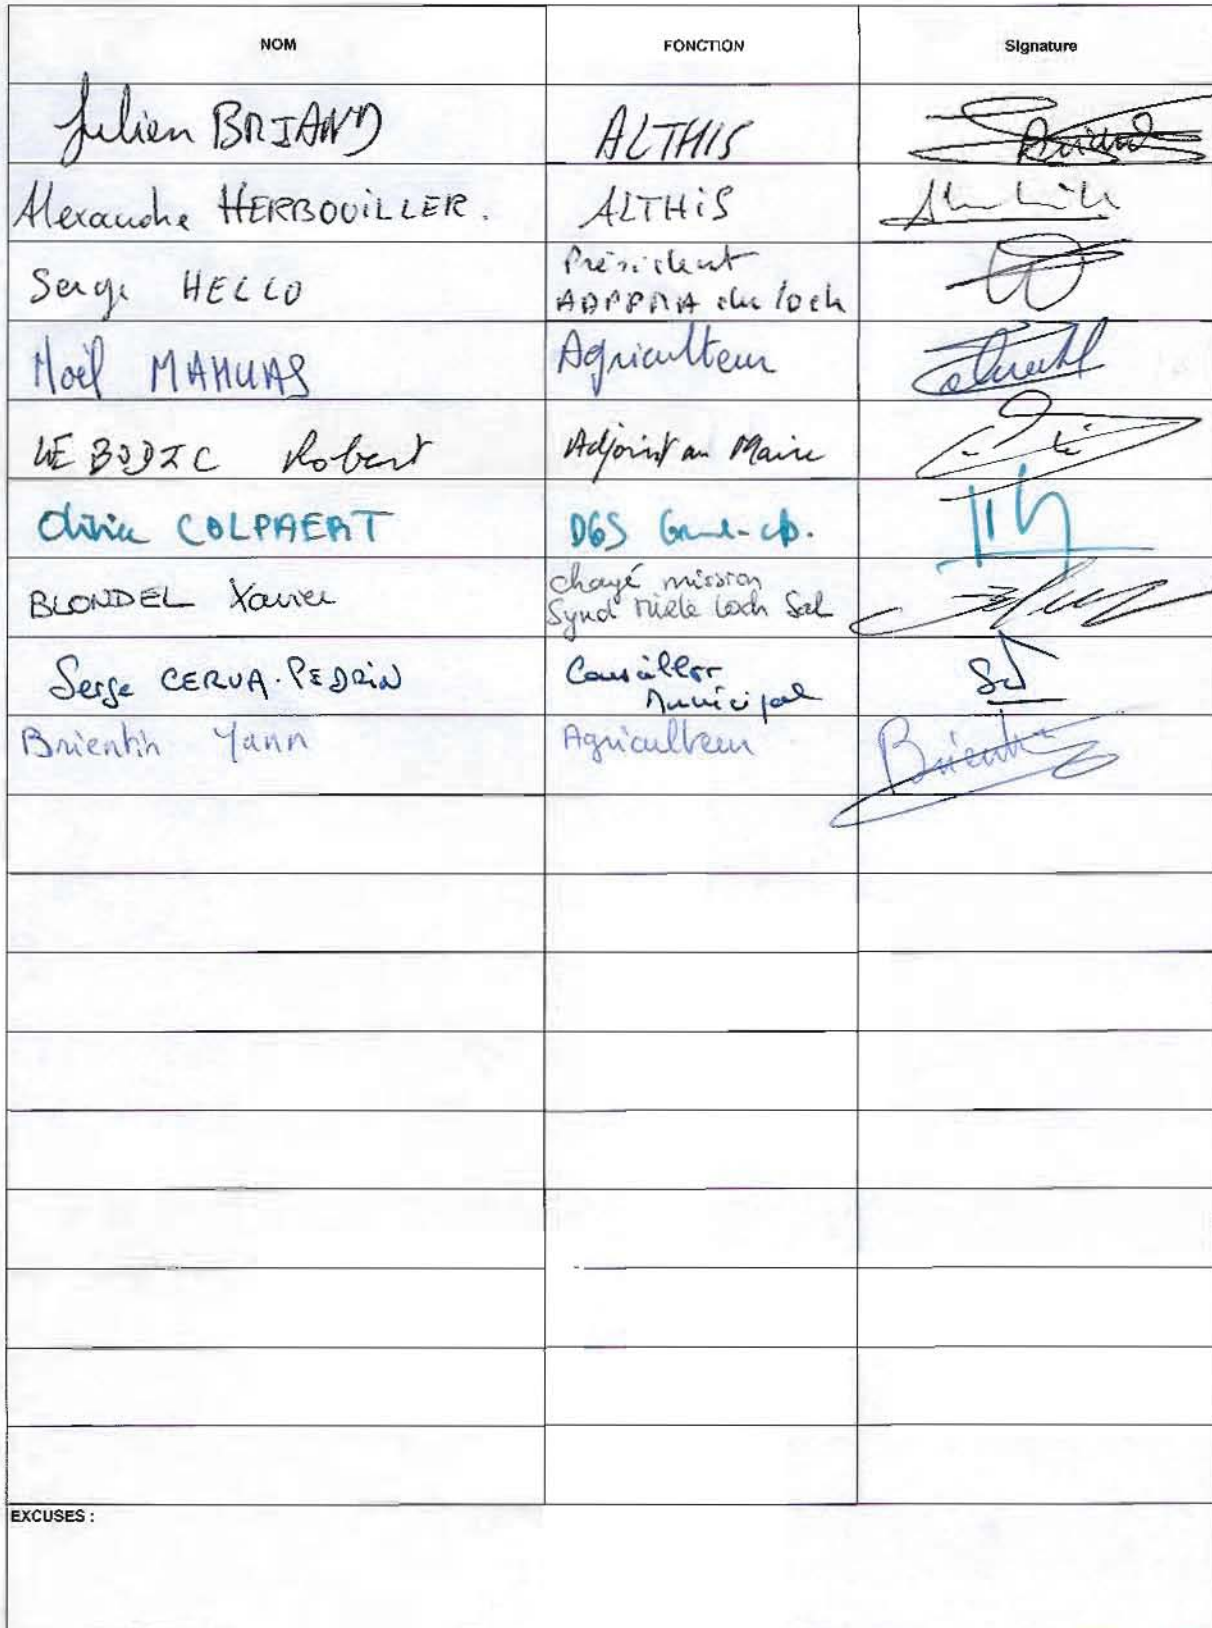 NOM FONCTION Signature
Julien BRIAND ALTHIS Briand
Alexandre HERBOUILLER. ALTHiS
Serge HELLO Président
AAPPMA du loch
Noël MAHUAS Agriculteur
LE BODIC Robert Adjoint au Maire
Olivier COLPAERT DGS
BLONDEL Xavier chargé mission
Synd Loch Sal
Serge CERVA-PEDRiN Conseiller
Municipal
Brientin Yann Agriculteur Brientin
EXCUSES :